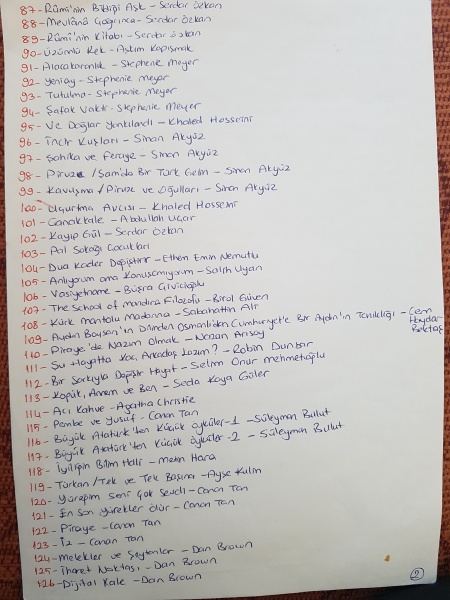 87- Rûmi'nin Bildiği Aşk - Serdar Özkan
88- Mevlâna Çağrınca - Serdar Özkan
89- Rûmi'nin Kitabı - Serdar Özkan
90- Üzümlü Kek - Aşkım Kapışmak
91- Alacakaranlık - Stephenie Meyer
92- Yeniay - Stephenie Meyer
93- Tutulma - Stephenie Meyer
94- Şafak Vakti - Stephenie Meyer
95- Ve Dağlar Yankılandı - Khaled Hosseini
96- İncir Kuşları - Sinan Akyüz
97- Şahika ve Feraye - Sinan Akyüz
98- Piruze / Şam'da Bir Türk Gelin - Sinan Akyüz
99- Kavuşma / Piruze ve Oğulları - Sinan Akyüz
100- Uçurtma Avcısı - Khaled Hosseini
101- Çanakkale - Abdullah Uçar
102- Kayıp Gül - Serdar Özkan
103- Pal Sokağı Çocukları
104- Dua Kader Değiştirir - Ethem Emin Nemutlu
105- Anlıyorum ama Konuşamıyorum - Salih Uyan
106- Vasiyetname - Büşra
107- The School of mandıra Filozofu - Birol Güven
108- Kürk mantolu Madonna - Sabahattin Ali
109- Aydın Boysan'ın Dilinden Osmanlıdan Cumhuriyet'e Bir Aydın'ın Tanıklığı - Cem Haydar Bektaş
110- Piraye'de Nazım Olmak - Nazan Arısoy
111- Şu Hayatta Kaç Arkadaş Lazım? - Robin Dunbar
112- Bir Şarkıyla Değişir Hayat - Selim Onur mehmetoğlu
113- Köpük, Annem ve Ben - Seda Kaya Güler
114- Acı Kahve - Agatha Christie
115- Pembe ve Yusuf - Canan Tan
116- Büyük Atatürk'ten Küçük Öyküler - 1 - Süleyman Bulut
117- Büyük Atatürk'ten Küçük Öyküler - 2 - Süleyman Bulut
118- İyiliğin Bilim Hali - Metin Hara
119- Türkan / Tek ve Tek Başına - Ayşe Kulin
120- Yüreğim Seni Çok Sevdi - Canan Tan
121- En Son Yürekler Ölür - Canan Tan
122- Piraye - Canan Tan
123- İz - Canan Tan
124- Melekler ve Şeytanlar - Dan Brown
125- İhanet Noktası - Dan Brown
126- Dijital Kale - Dan Brown
2